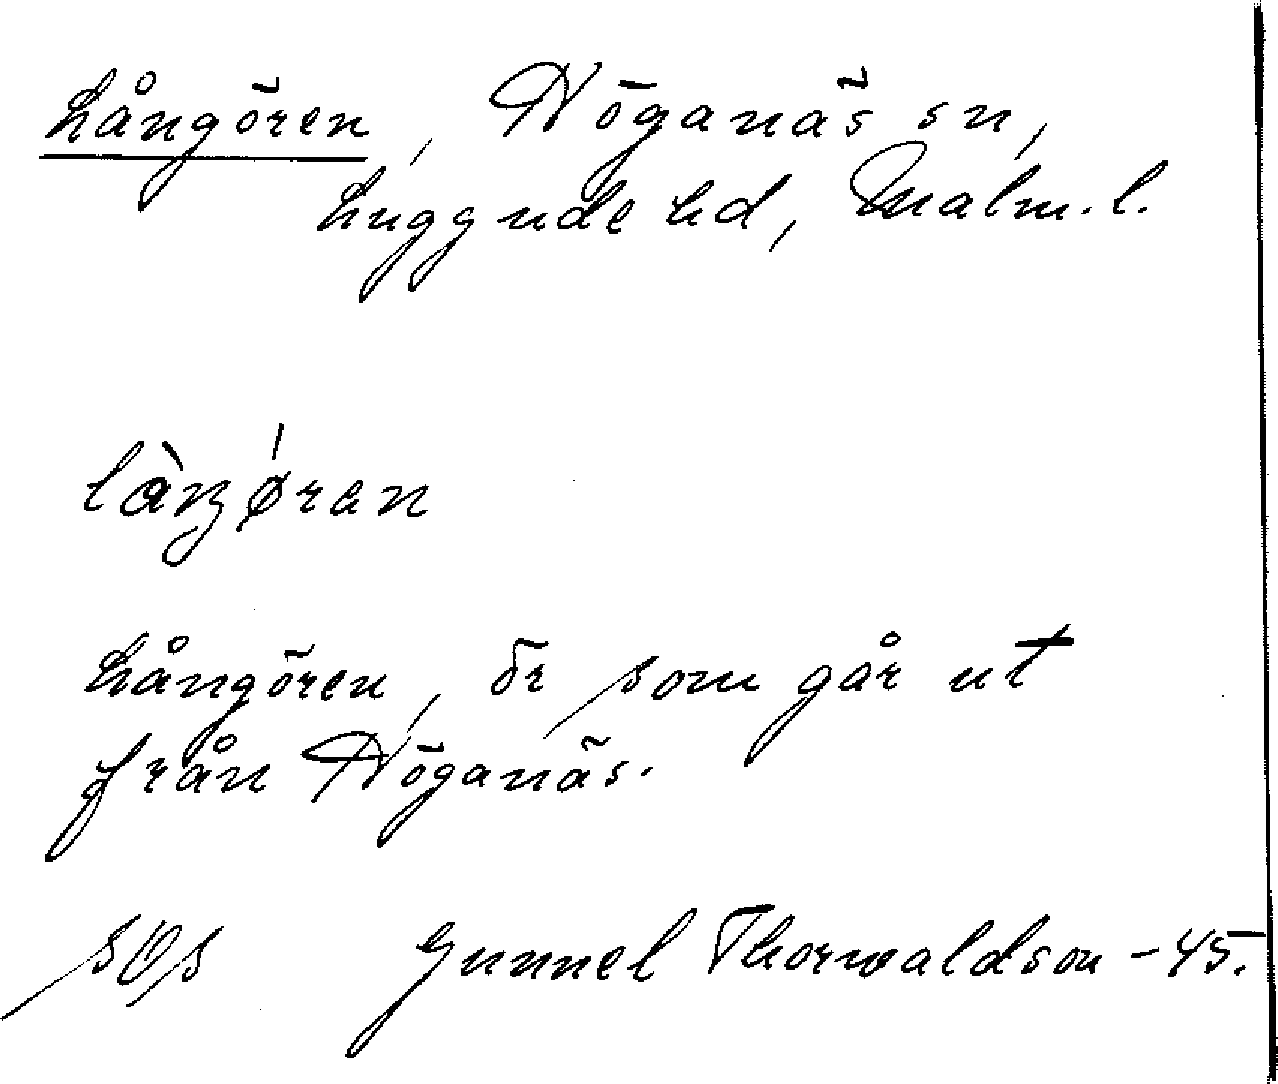 Långören, Höganäs sn,
Luggude hd, Malm. l.
làŋǿran
Långören, ör som går ut
från Höganäs.
Gunnel Thorwaldson -45.